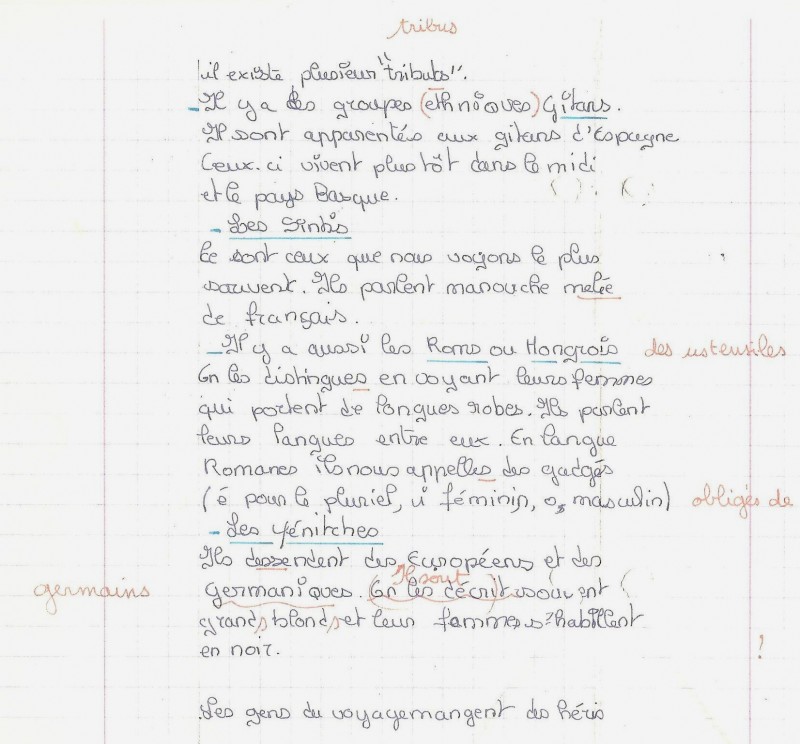 tribus
il existe plusieur "tributs".
- Il y a des groupes (ethniques) Gitans.
Il sont apparentés aux gitans d'Espagne
Ceux-ci vivent plus tôt dans le midi
et le pays Basque.
- Les Sintis
Ce sont ceux que nous voyons le plus
souvent. Ils parlent manouche melée
de français.
- Il y a aussi les Roms ou Hongrois des ustensiles
On les distingues en voyant leurs femmes
qui portent de longues robes. Ils parlent
leurs langues entre eux. En langue
Romanes ils nous appelles des gadgés
(é pour le pluriel, i féminin, o, masculin) obligés de
- Les Yénitches
Ils dessendent des Européens et des
Il sont
germains germaniques. (On les décrit) souvent
grands, blonds, et leur femmes s'habillent
en noir. !
Les gens du voyage mangent des héris